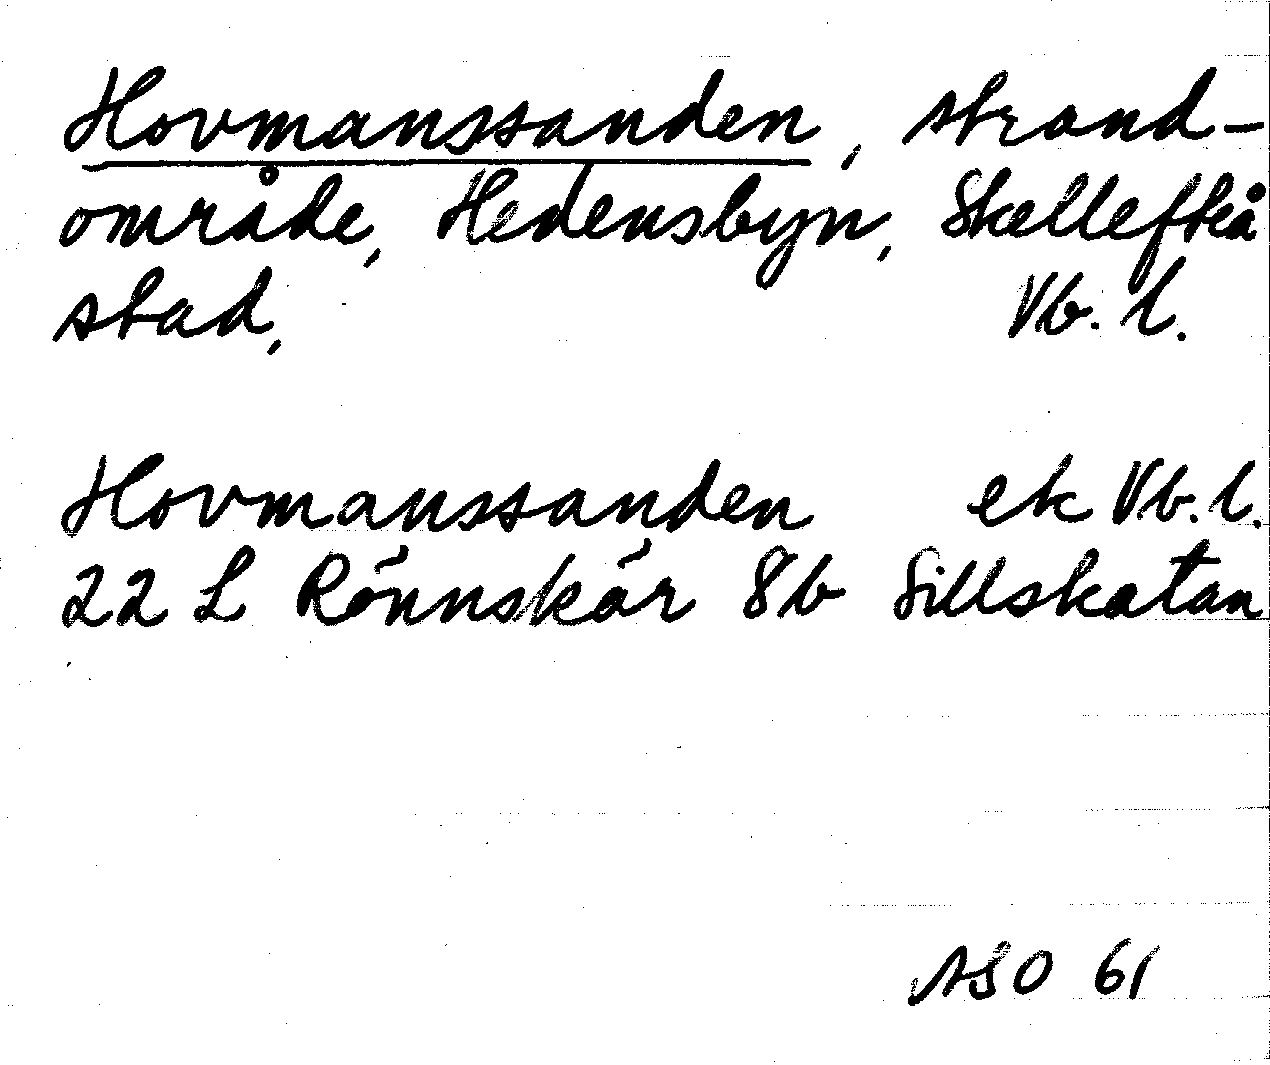 Hovmanssanden, strand-
område, Hedensbyn, Skellefteå
stad, Vb. l.
Hovmanssanden ek Vb. l.
22 L Rönnskär 8b Sillskatan
ASO 61